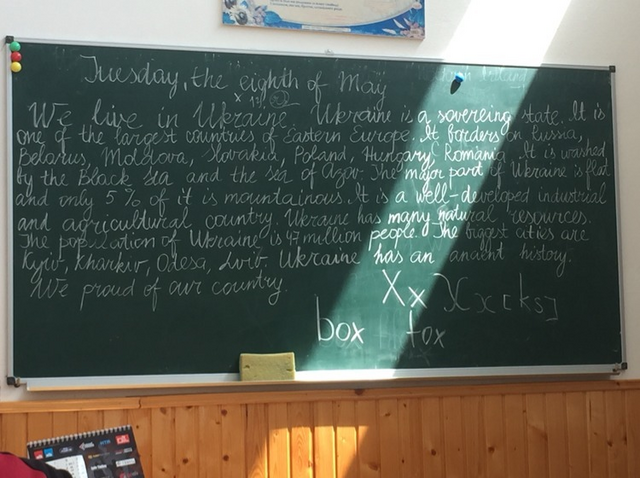 Tuesday, the eighth of May
We live in Ukraine. Ukraine is a sovereing state. It is
one of the largest countries of Eastern Europe. It borders on Russia,
Belarus, Moldova, Slovakia, Poland, Hungary, Romania. It is washed
by the Black Sea and the sea of Azov. The major part of Ukraine is flat
and only 5% of it is mountainous. It is a well-developed industrial
and agricultural country. Ukraine has many natural resources.
The population of Ukraine is 47 million people. The biggest cities are
Kyiv, Kharkiv, Odesa, Lviv. Ukraine has an ancient history.
We proud of our country.
Xx Xx [ks]
box fox